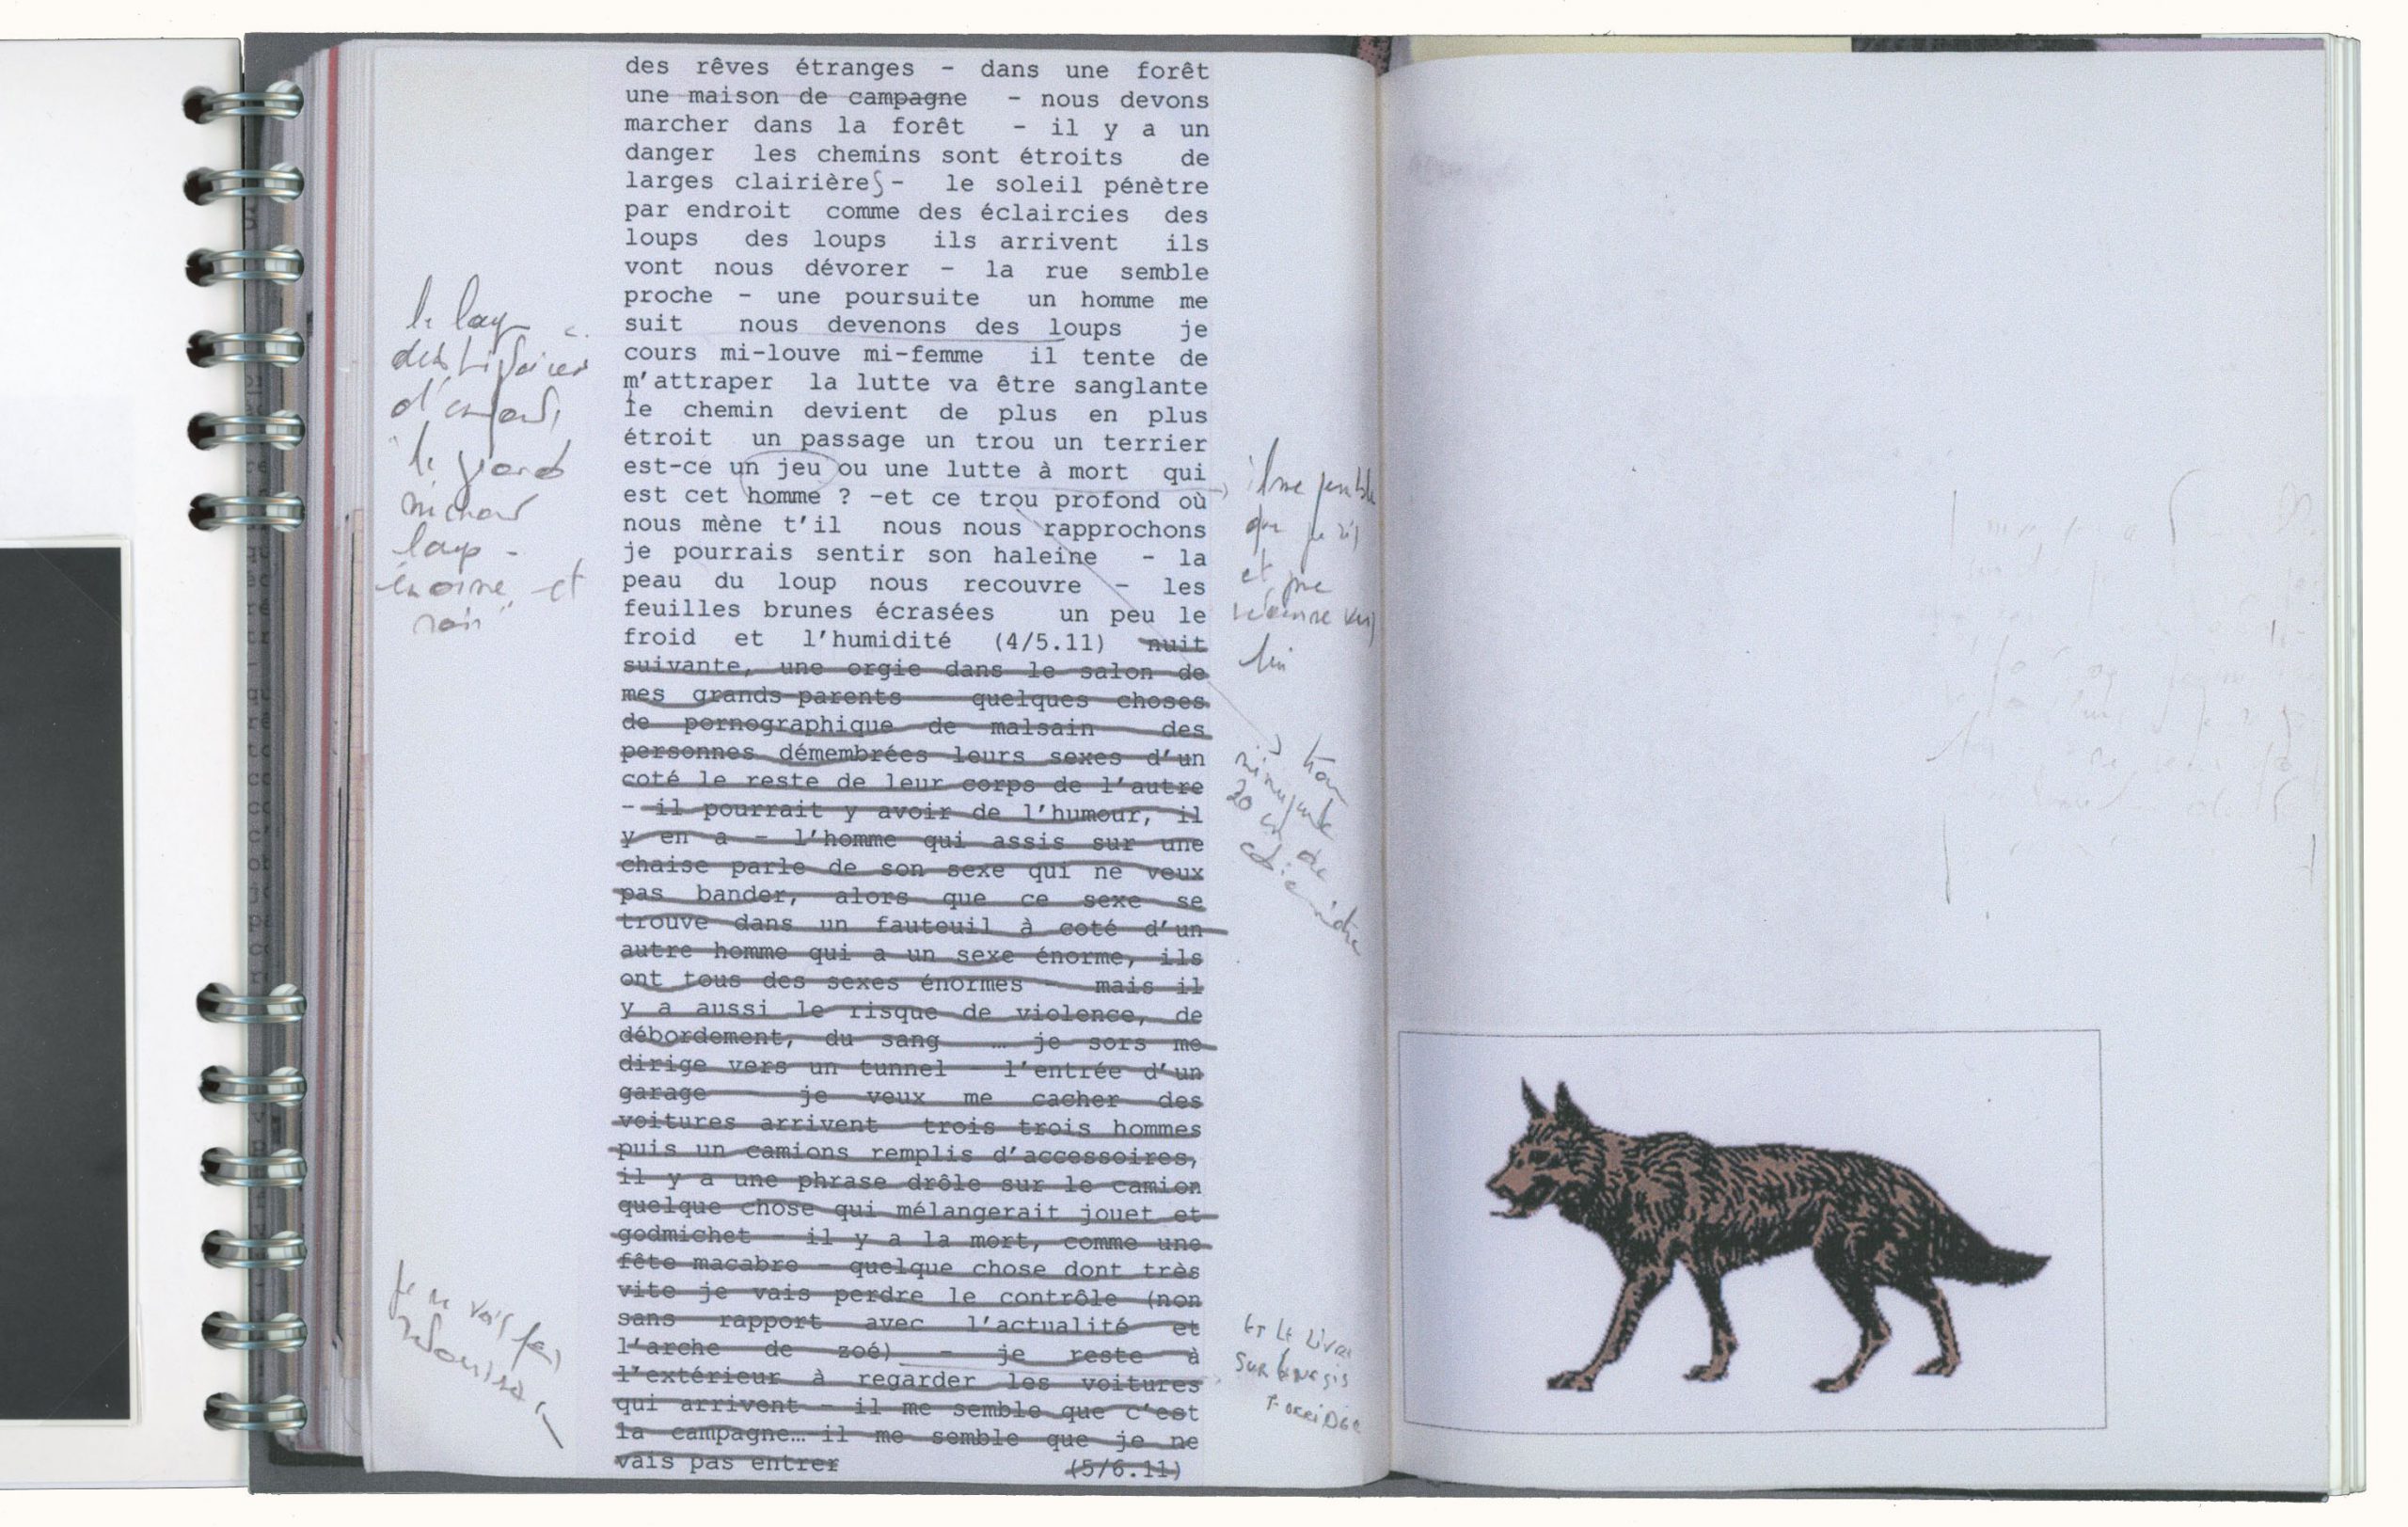 des rêves étranges - dans une forêt
une maison de campagne - nous devons
marcher dans la forêt - il y a un
danger les chemins sont étroits de
larges clairières - le soleil pénètre
par endroit comme des éclaircies des
loups des loups ils arrivent ils
vont nous dévorer - la rue semble
proche - une poursuite un homme me
suit nous devenons des loups je
cours mi-louve mi-femme il tente de
m'attraper la lutte va être sanglante
le chemin devient de plus en plus
étroit un passage un trou un terrier
est-ce un jeu ou une lutte à mort qui
est cet homme ? -et ce trou profond où
nous mène t'il nous nous rapprochons
je pourrais sentir son haleine - la
peau du loup nous recouvre - les
feuilles brunes écrasées un peu le
froid et l'humidité (4/5.11) nuit
suivante, une orgie dans le salon de
mes grands-parents quelques choses
de pornographique de malsain des
personnes démembrées leurs sexes d'un
coté le reste de leur corps de l'autre
- il pourrait y avoir de l'humour, il
y en a - l'homme qui assis sur une
chaise parle de son sexe qui ne veux
pas bander, alors que ce sexe se
trouve dans un fauteuil à coté d'un
autre homme qui a un sexe énorme, ils
ont tous des sexes énormes - mais il
y a aussi le risque de violence, de
débordement, du sang … je sors me
dirige vers un tunnel - l'entrée d'un
garage je veux me cacher des
voitures arrivent trois trois hommes
puis un camions remplis d'accessoires,
il y a une phrase drôle sur le camion
quelque chose qui mélangerait jouet et
godmichet - il y a la mort, comme une
fête macabre - quelque chose dont très
vite je vais perdre le contrôle (non
sans rapport avec l'actualité et
l'arche de zoé) - je reste à
l'extérieur à regarder les voitures
qui arrivent - il me semble que c'est
la campagne… il me semble que je ne
vais pas entrer (5/6.11)
le loup
des histoires
d'enfants
le grand
méchant
loup -
énorme et
noir
il me semble
que je
et
lui
trou
minuscule
20 cm de
diamètre
je ne vais pas
Et le livre
sur